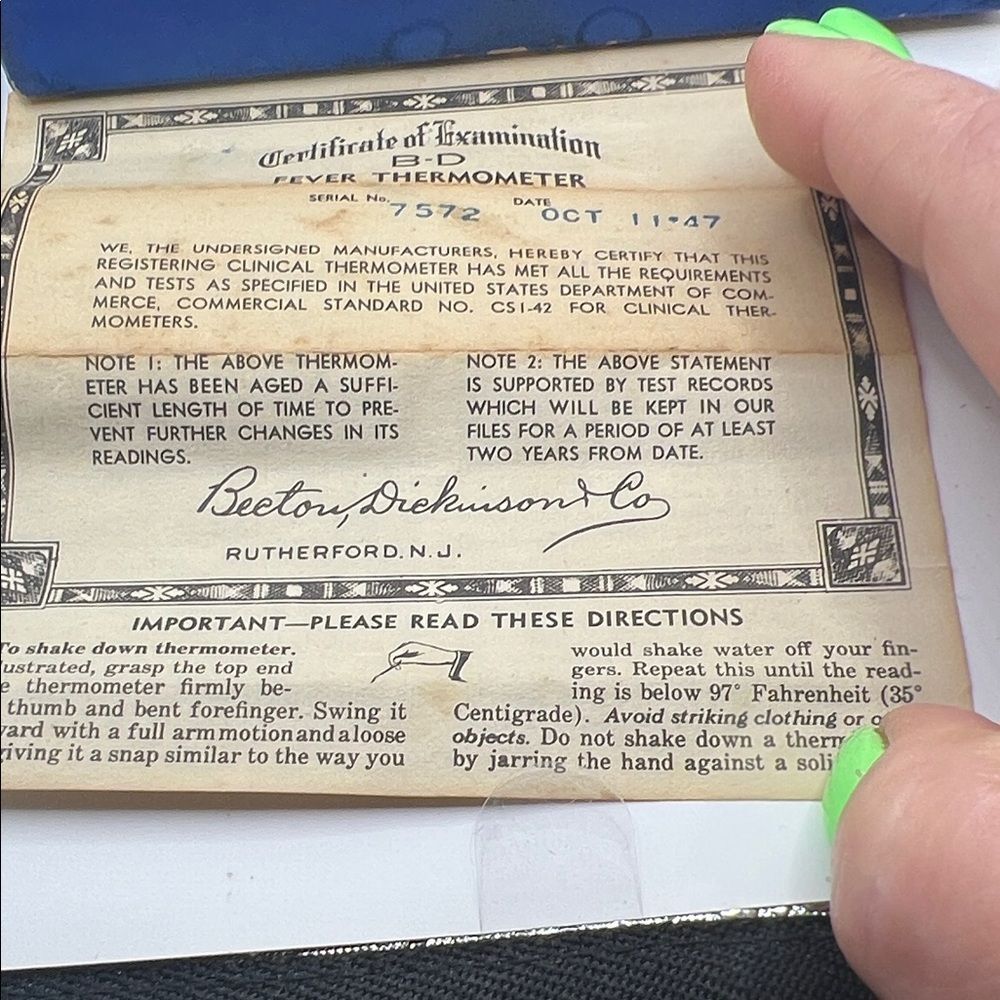 Certificate of Examination
B-D
FEVER THERMOMETER
SERIAL No. 7572 DATE OCT 11·47
WE, THE UNDERSIGNED MANUFACTURERS, HEREBY CERTIFY THAT THIS
REGISTERING CLINICAL THERMOMETER HAS MET ALL THE REQUIREMENTS
AND TESTS AS SPECIFIED IN THE UNITED STATES DEPARTMENT OF COM-
MERCE, COMMERCIAL STANDARD NO. CS1-42 FOR CLINICAL THER-
MOMETERS.
NOTE 1: THE ABOVE THERMOM-
ETER HAS BEEN AGED A SUFFI-
CIENT LENGTH OF TIME TO PRE-
VENT FURTHER CHANGES IN ITS
READINGS.
NOTE 2: THE ABOVE STATEMENT
IS SUPPORTED BY TEST RECORDS
WHICH WILL BE KEPT IN OUR
FILES FOR A PERIOD OF AT LEAST
TWO YEARS FROM DATE.
Becton, Dickinson & Co
RUTHERFORD, N. J.
IMPORTANT—PLEASE READ THESE DIRECTIONS
To shake down thermometer.
ustrated, grasp the top end
thermometer firmly be-
thumb and bent forefinger. Swing it
ard with a full arm motion and a loose
giving it a snap similar to the way you
would shake water off your fin-
gers. Repeat this until the read-
ing is below 97° Fahrenheit (35°
Centigrade). Avoid striking clothing or
objects. Do not shake down a therm
by jarring the hand against a soli